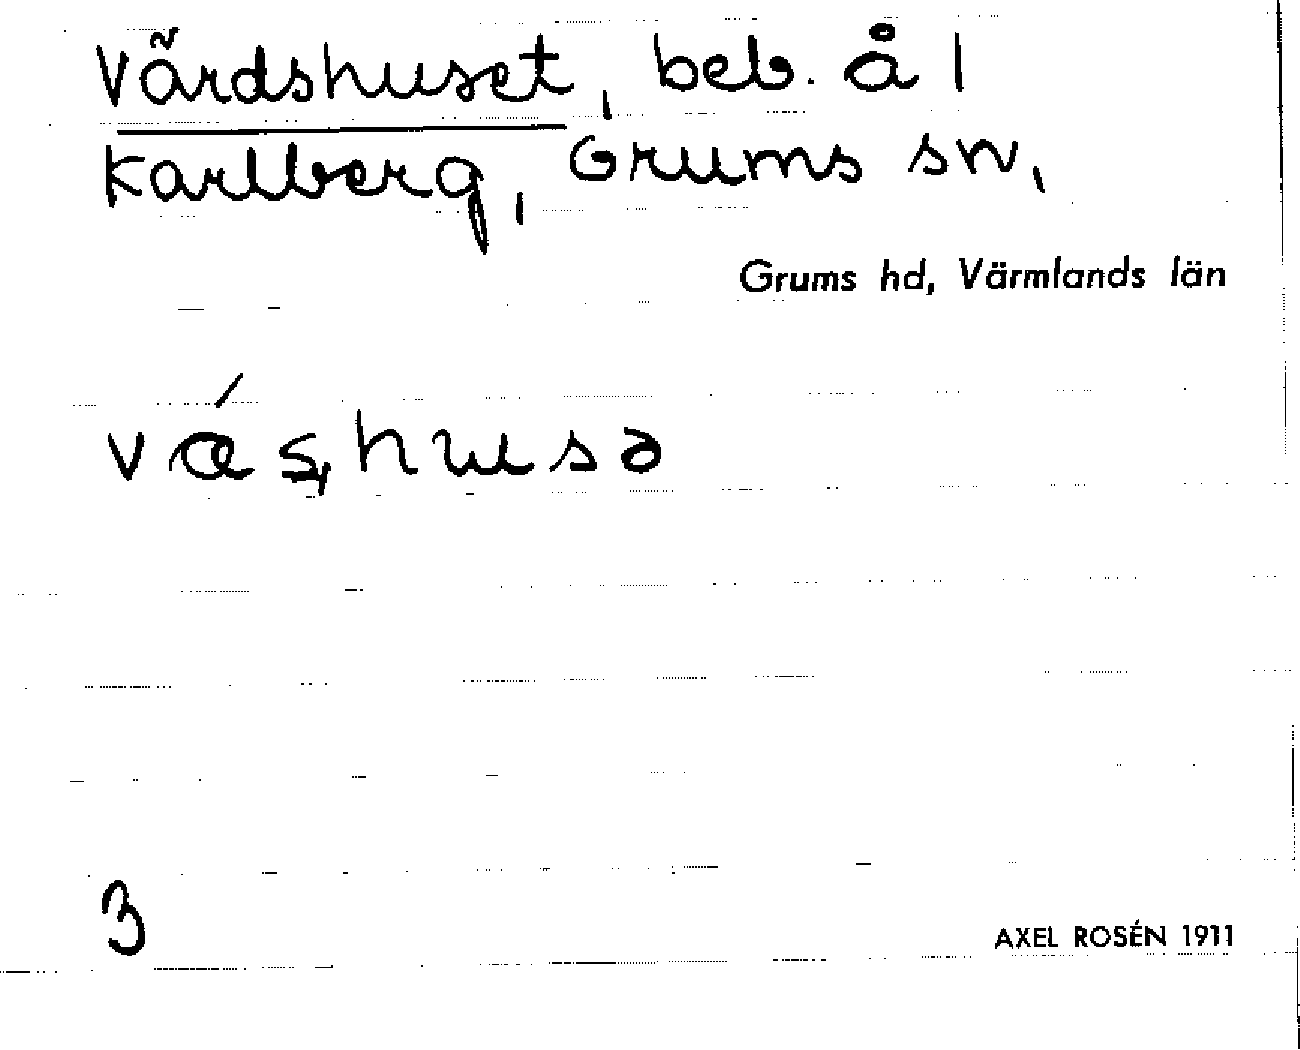 Värdshuset, beb. å 1
Karlberg, Grums sn,
Grums hd, Värmlands län
vǽʂhusə
3
AXEL ROSÉN 1911